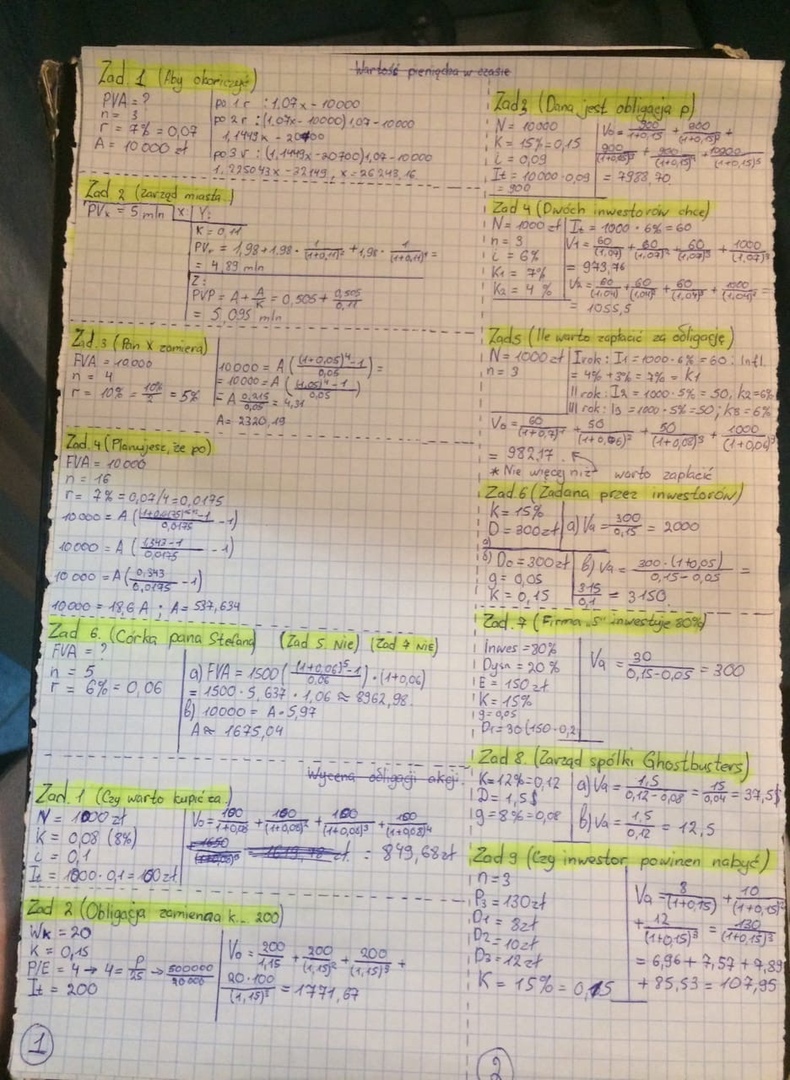 Wartość pieniądza w czasie
Zad. 1 (Aby ukończyć)
PVA = ?
n = 3
r = 7% = 0,07
A = 10 000 zł
po 1 r : 1,07x - 10000
po 2 r : (1,07x - 10000) 1,07 - 10000
1,1449x - 20700
po 3 r : (1,1449x - 20700) 1,07 - 10000
1,225043x - 32149, x = 26243,16
Zad 2 (Zarząd miasta..)
PVx = 5 mln x
Y:
K = 0,11
PVY = 1,98 + 1,98 · 1/(1+0,11)² + 1,98 · 1/(1+0,11)⁴ =
= 4,89 mln
Z:
PVP = A + A/K = 0,505 + 0,505/0,11
= 5,095 mln
Zad. 3 (Pan X zamierza)
FVA = 10.000
n = 4
r = 10% = 10%/2 = 5%
10000 = A ((1+0,05)⁴-1/0,05) =
= 10000 = A ((1,05)⁴-1/0,05)
= A 0,215/0,05 = 4,31
A = 2320,19
Zad. 4 (Planujesz, że po)
FVA = 10000
n = 16
r = 7% = 0,07/4 = 0,0175
10000 = A (-1/0,0175 - 1)
10000 = A (1,343-1/0,0175 - 1)
10 000 = A (0,343/0,0175 - 1)
10000 = 18,6 A ; A = 537,634
Zad 6. (Córka pana Stefana) (Zad 5 Nie) (Zad 7 NIE)
FVA = ?
n = 5
r = 6% = 0,06
a) FVA = 1500 ((1+0,06)⁵-1/0,06) · (1+0,06)
= 1500 · 5,637 · 1,06 ≈ 8962,98.
b) 10000 = A · 5,97
A ≈ 1675,04
Wycena obligacji akcji
Zad. 1 (Czy warto kupić za)
N = 1000 zł
K = 0,08 (8%)
i = 0,1
It = 1000 · 0,1 = 100 zł
V0 = 100/1+0,08 + 100/(1+0,08)² + 100/(1+0,08)³ + /(1+0,08)⁴
= 849,68 zł
Zad 2 (Obligacja zamienna k... 200)
Wk = 20
K = 0,15
P/E = 4 → 4 = P/25 → 500000/20000
It = 200
V0 = 200/1,15 + 200/(1,15)² + 200/(1,15)³ +
20·100/(1,15)³ = 1771,67
1
Zad 3 (Dana jest obligacja p)
N = 10000
K = 15% = 0,15
i = 0,09
It = 10000 · 0,09
= 900
V0 = 900/1+0,15 + 900/(1+0,15)² +
900/(1+0,15)³ + 900/(1+0,15)⁴ + /(1+0,15)⁵
= 7988,70
Zad 4 (Dwóch inwestorów chce)
N = 1000 zł
n = 3
i = 6%
K1 = 7%
K2 = 4%
It = 1000 · 6% = 60
V1 = 60/(1,07) + 60/(1,07)² + 60/(1,07)³ + 1000/(1,07)³
= 973,76
V2 = 60/(1,04) + 60/(1,04)² + 60/(1,04)³ + 1000/(1,04)³ =
= 1055,5
Zad5 (Ile warto zapłacić za obligację)
N = 1000 zł
n = 3
I rok : I1 = 1000 · 6% = 60 : Infl.
= 4% + 3% = 7% = K1
II rok : I2 = 1000 · 5% = 50, k2 = 6%
III rok : I3 = 1000 · 5% = 50 ; k3 = 6%
V0 = 60/(1+0,7)¹ + 50/(1+0,06)² + 50/(1+0,06)³ + 1000/(1+0,06)³
= 982,17.
* Nie więcej niż warto zapłacić
Zad.6 (Żądana przez inwestorów)
K = 15%
D = 300 zł
a) Va = 300/0,15 = 2000
a)
b) D0 = 300 zł
g = 0,05
K = 0,15
b) Va = 300·(1+0,05)/0,15-0,05 =
315/0,1 = 3150.
Zad. 7 (Firma „S" inwestuje 80%)
Inwes = 80%
Dyw = 20%
E = 150 zł
K = 15%
g = 0,05
D1 = 30 (150 · 0,2
Va = 30/0,15-0,05 = 300
Zad 8. (Zarząd spółki Ghostbusters)
K = 12% = 0,12
D = 1,5$
g = 8% = 0,08
a) Va = 1,5/0,12-0,08 = 15/0,04 = 37,5$
b) Va = 1,5/0,12 = 12,5
Zad 9 (Czy inwestor powinen nabyć)
n = 3
P3 = 130 zł
D1 = 8 zł
D2 = 10 zł
D3 = 12 zł
K = 15% = 0,15
Va = 8/(1+0,15) + 10/(1+0,15)²
+ 12/(1+0,15)³ = 130/(1+0,15)³
= 6,96 + 7,57 + 7,89
+ 85,53 = 107,95
2